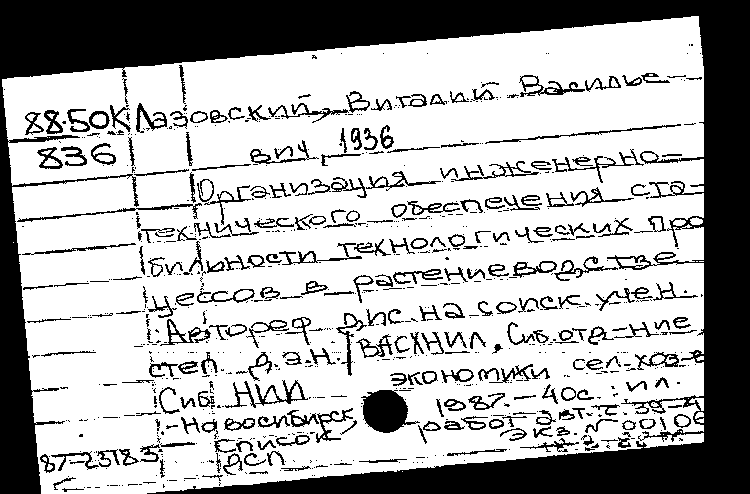 88.50К Лазовский, Виталий Василье-
836 вич, 1936
Организация инженерно-
технического обеспечения ста-
бильности технологических про
цессов в растениеводстве
Автореф дис. на соиск. учен.
степ д.э.н. / ВАСХНИЛ, Сиб. отд-ние,
Сиб. НИИ экономики сел. хоз-в
-Новосибирск, 1987. - 40с.: ил.
список работ авт.: с. 39-4
87-23783 ДСП Экз. № 00106